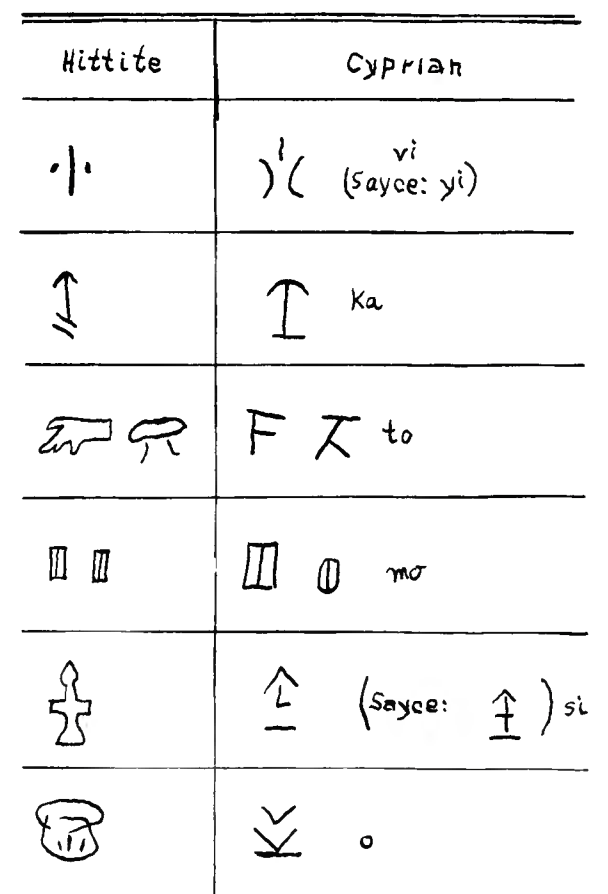 Hittite Cyprian
vi
(Sayce: yi)
Ka
to
mo
(Sayce: ) si
o